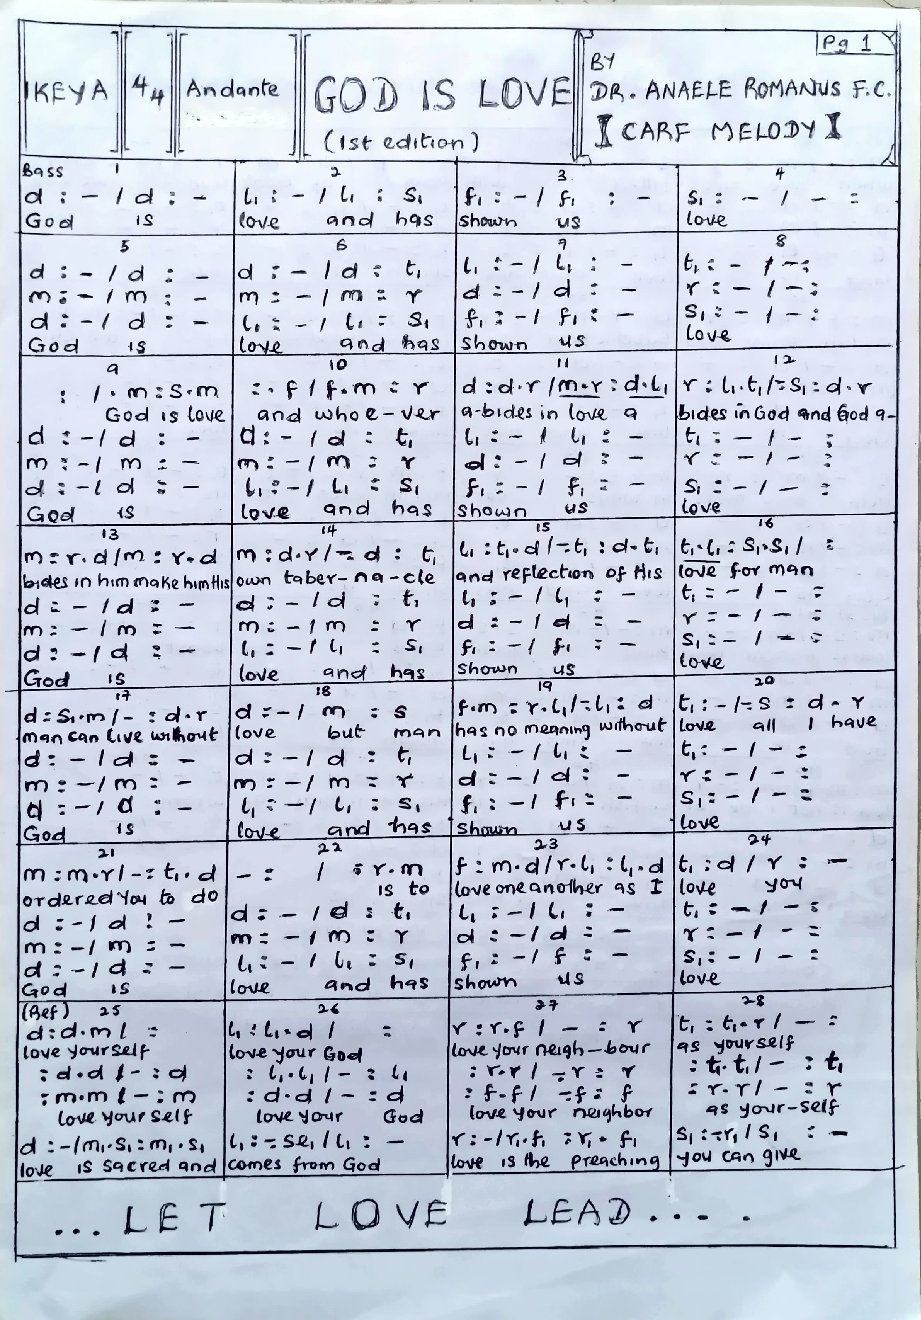 KEY A
4/4
Andante
GOD IS LOVE
(1st edition)
Pg 1
BY
DR. ANAELE ROMANUS F.C.
[CARF MELODY]
Bass 1
d : - / d : -
God is
2
l₁ : - / l₁ : s₁
love and has
3
f₁ : - / f₁ : -
shown us
4
s₁ : - / - :
love
5
d : - / d : -
m : - / m : -
d : - / d : -
God is
6
d : - / d : t₁
m : - / m : r
l₁ : - / l₁ : s₁
love and has
7
l₁ : - / l₁ : -
d : - / d : -
f₁ : - / f₁ : -
shown us
8
t₁ : - / - :
r : - / - :
s₁ : - / - :
love
9
: / . m : s . m
God is love
d : - / d : -
m : - / m : -
d : - / d : -
God is
10
: . f / f . m : r
and whoe-ver
d : - / d : t₁
m : - / m : r
l₁ : - / l₁ : s₁
love and has
11
d : d . r / m . r : d . l₁
a-bides in love a
l₁ : - / l₁ : -
d : - / d : -
f₁ : - / f₁ : -
shown us
12
r : l₁ . t₁ / - : s₁ : d . r
bides in God and God a-
t₁ : - / - :
r : - / - :
s₁ : - / - :
love
13
m : r . d / m : r . d
bides in him make him His
d : - / d : -
m : - / m : -
d : - / d : -
God is
14
m : d . r / - : d : t₁
own taber-na-cle
d : - / d : t₁
m : - / m : r
l₁ : - / l₁ : s₁
love and has
15
l₁ : t₁ . d / - : t₁ : d . t₁
and reflection of His
l₁ : - / l₁ : -
d : - / d : -
f₁ : - / f₁ : -
shown us
16
t₁ . l₁ : s₁ . s₁ / :
love for man
t₁ : - / - :
r : - / - :
s₁ : - / - :
love
17
d : s₁ . m / - : d . r
man can live without
d : - / d : -
m : - / m : -
d : - / d : -
God is
18
d : - / m : s
love but man
d : - / d : t₁
m : - / m : r
l₁ : - / l₁ : s₁
love and has
19
f . m : r . l₁ / - : l₁ : d
has no meaning without
l₁ : - / l₁ : -
d : - / d : -
f₁ : - / f₁ : -
shown us
20
t₁ : - / - : s : d . r
love all I have
t₁ : - / - :
r : - / - :
s₁ : - / - :
love
21
m : m . r / - : t₁ . d
ordered You to do
d : - / d : -
m : - / m : -
d : - / d : -
God is
22
- : / : r . m
is to
d : - / d : t₁
m : - / m : r
l₁ : - / l₁ : s₁
love and has
23
f : m . d / r . l₁ : l₁ . d
love one another as I
l₁ : - / l₁ : -
d : - / d : -
f₁ : - / f : -
shown us
24
t₁ : d / r : -
love you
t₁ : - / - :
r : - / - :
s₁ : - / - :
love
(Ref) 25
d : d . m / :
love yourself
: d . d / - : d
: m . m / - : m
love your self
d : - / m₁ . s₁ : m₁ . s₁
love is sacred and
26
l₁ : l₁ . d / :
love your God
: l₁ . l₁ / - : l₁
: d . d / - : d
love your God
l₁ : - se₁ / l₁ : -
comes from God
27
r : r . f / - : r
love your neigh-bour
: r . r / - : r : r
: f . f / - f : f
love your neighbor
r : - / r₁ . f₁ : r₁ . f₁
love is the preaching
28
t₁ : t₁ . r / - :
as yourself
: t₁ . t₁ / - : t₁
: r . r / - : r
as your-self
s₁ : - r₁ / s₁ : -
you can give
... LET LOVE LEAD ....